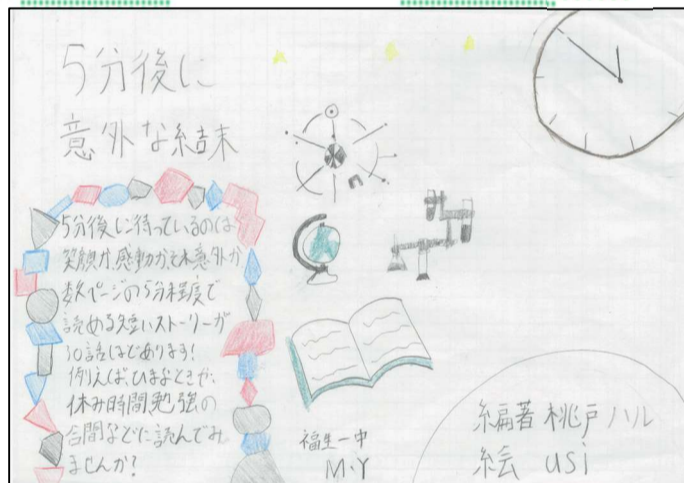 5分後に
意外な結末
5分後に待っているのは
笑顔か、感動か、それ意外か
数ページの5分程度で
読める短いストーリーが
30話ほどあります!
例えば、ひまなときや、
休み時間勉強の
合間などに読んでみ
ませんか?
福生一中
M・Y
編著 桃戸ハル
絵 usi